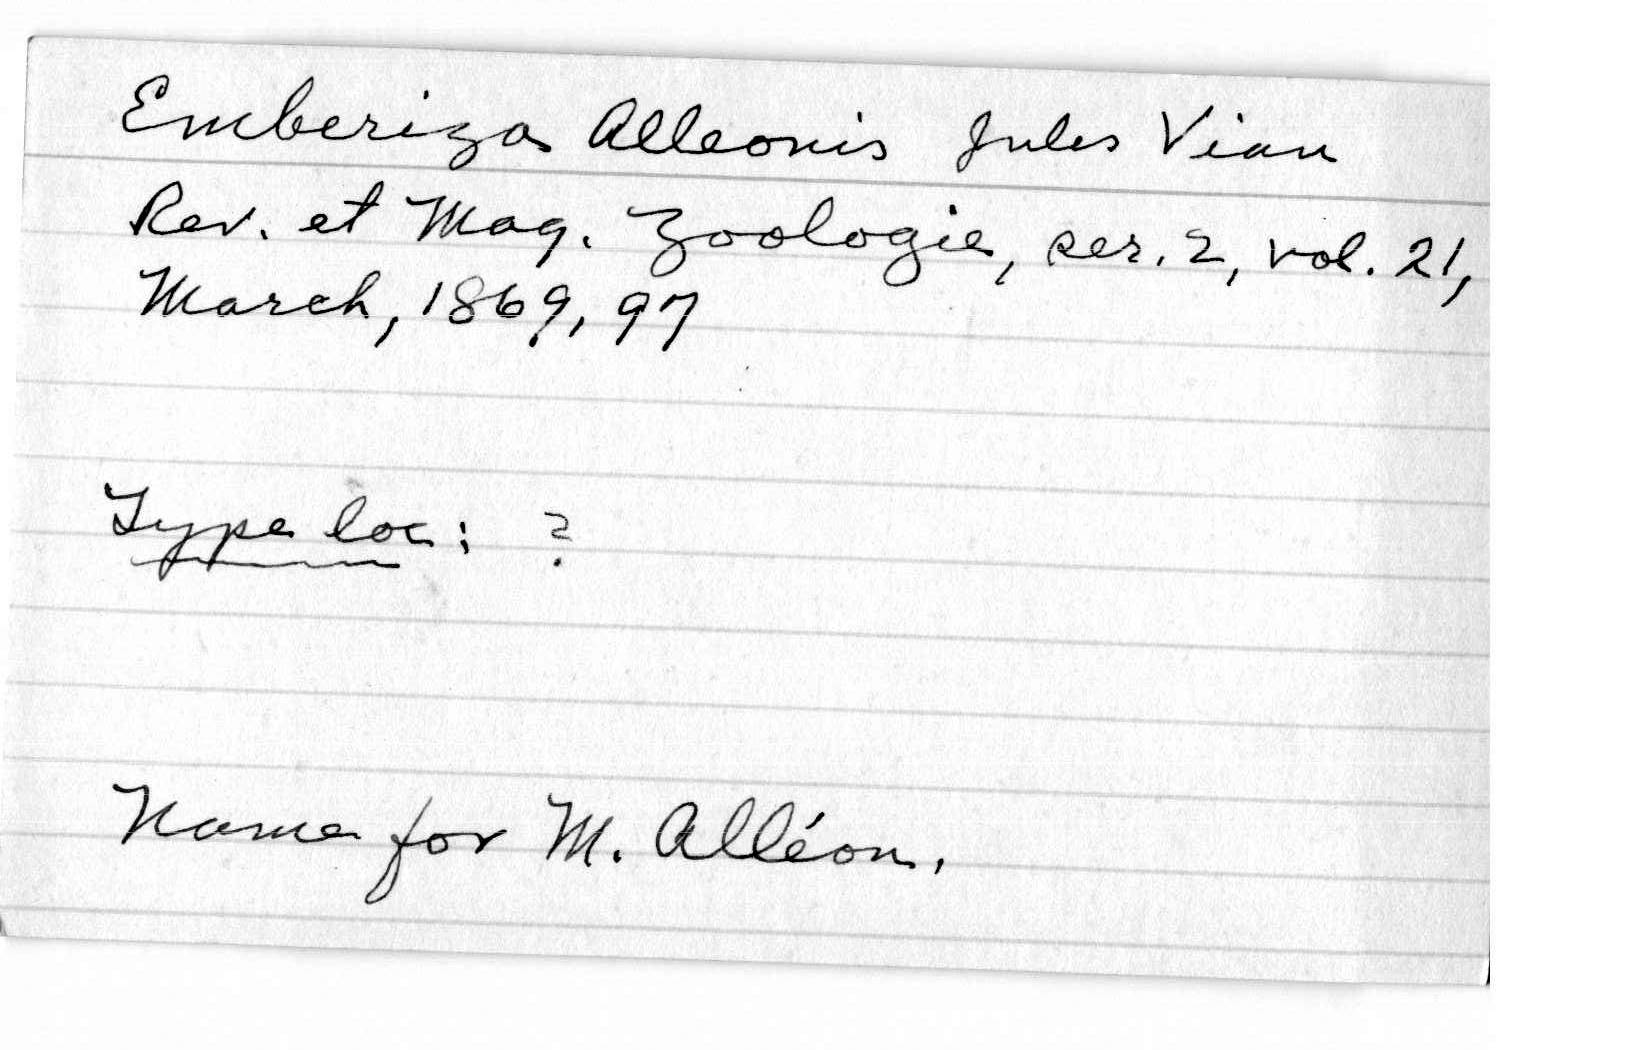 Emberiza Alleonis Jules Vian
Rev. et Mag. Zoologie, ser. 2, vol. 21,
March, 1869, 97
Type loc: ?
Name for M. Alléon.